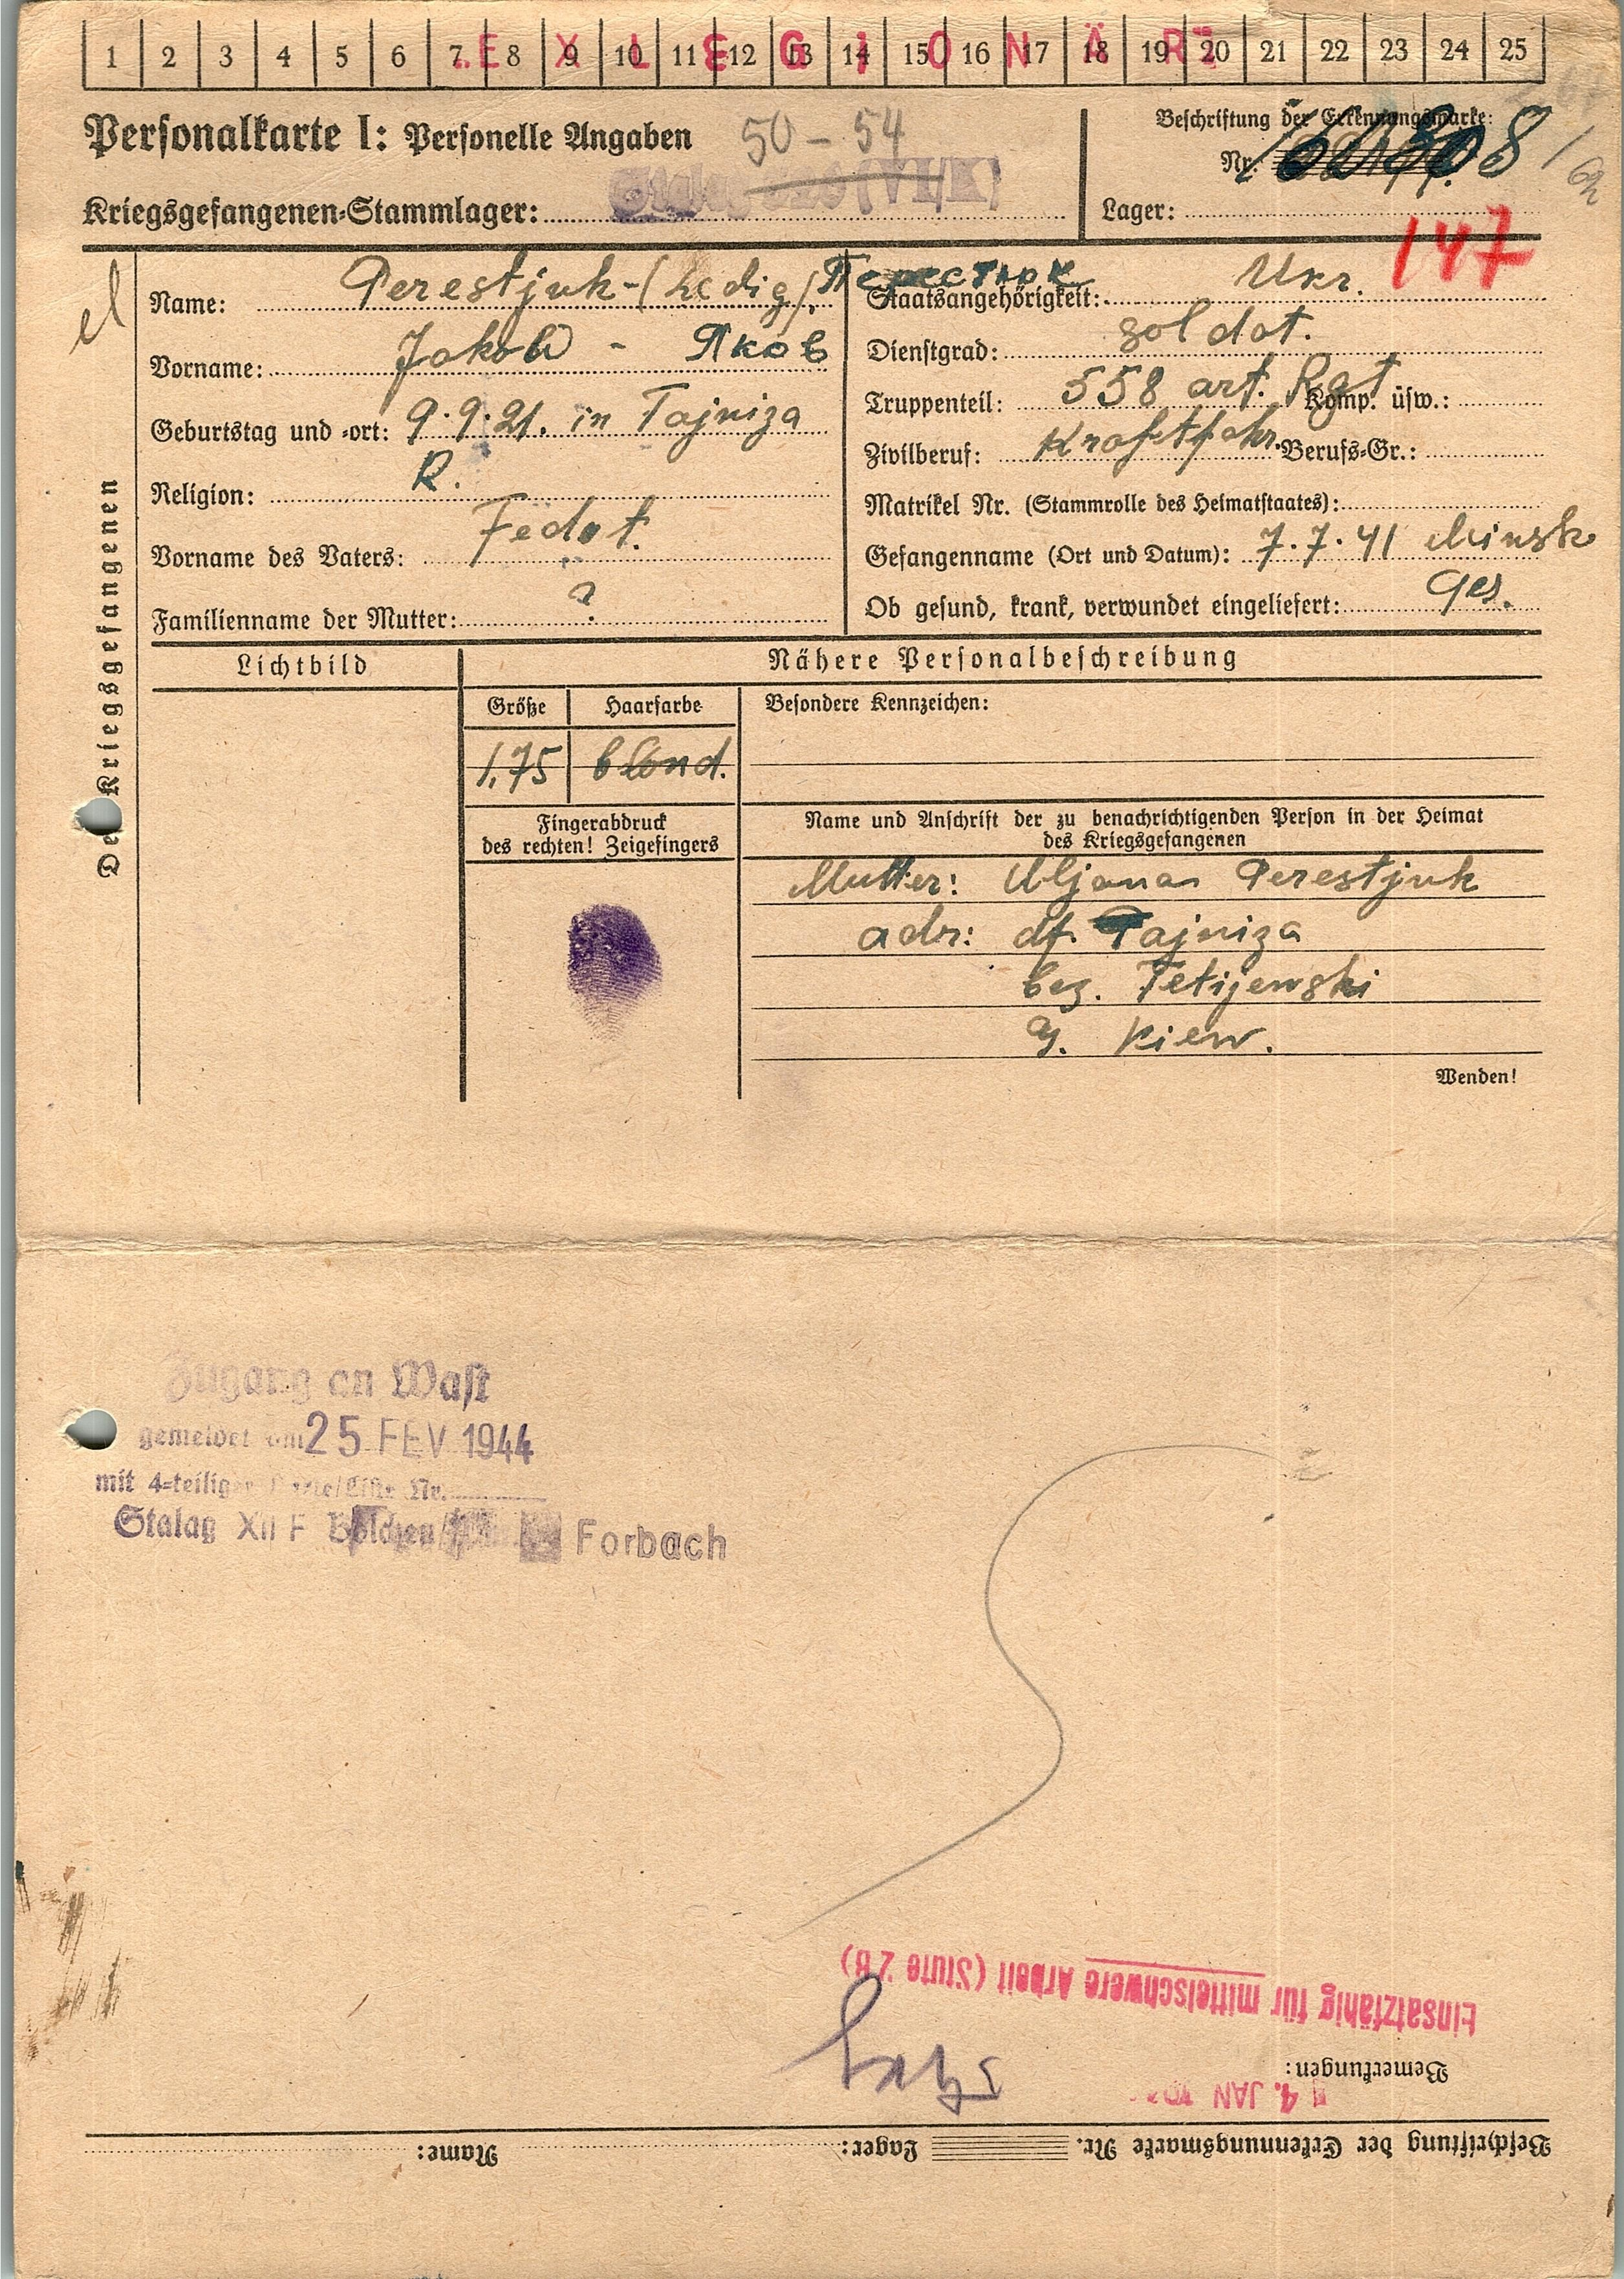 1 2 3 4 5 6 7 8 9 10 11 12 13 14 15 16 17 18 19 20 21 22 23 24 25
EXLEGIONÄR
Personalkarte I: Personelle Angaben
50 - 54
Beschriftung der Erkennungsmarke:
Nr.
Kriegsgefangenen-Stammlager: Stalag (VI/K)
Lager:
147
Des Kriegsgefangenen
Name: Perestjuk - (Ledig). Перестюк
Staatsangehörigkeit: Ukr.
Vorname: Jakob - Яков
Dienstgrad: Soldat.
Geburtstag und -ort: 9.9.21. in Tajniza
Truppenteil: 558 art. Rgt Komp. usw.:
Religion: R.
Zivilberuf: Kraftfahr. Berufs-Gr.:
Matrikel Nr. (Stammrolle des Heimatstaates):
Vorname des Vaters: Fedot.
Gefangenname (Ort und Datum): 7.7.41 Minsk
Familienname der Mutter: ?
Ob gesund, krank, verwundet eingeliefert: ges.
Lichtbild
Nähere Personalbeschreibung
Größe
Haarfarbe
Besondere Kennzeichen:
1,75
blond.
Fingerabdruck
des rechten! Zeigefingers
Name und Anschrift der zu benachrichtigenden Person in der Heimat
des Kriegsgefangenen
Mutter: Uljana Perestjuk
adr: df. Tajniza
bez. Tetijewski
g. Kiew.
Wenden!
Zugang an Wast
gemeldet am 25 FEV 1944
mit 4-teiliger Nr.
Stalag XII F Bolchen Forbach
Einsatzfähig für mittelschwere Arbeit (Stufe 2 B)
Bemerkungen:
4. JAN
Beschriftung der Erkennungsmarke Nr. Lager: Name: